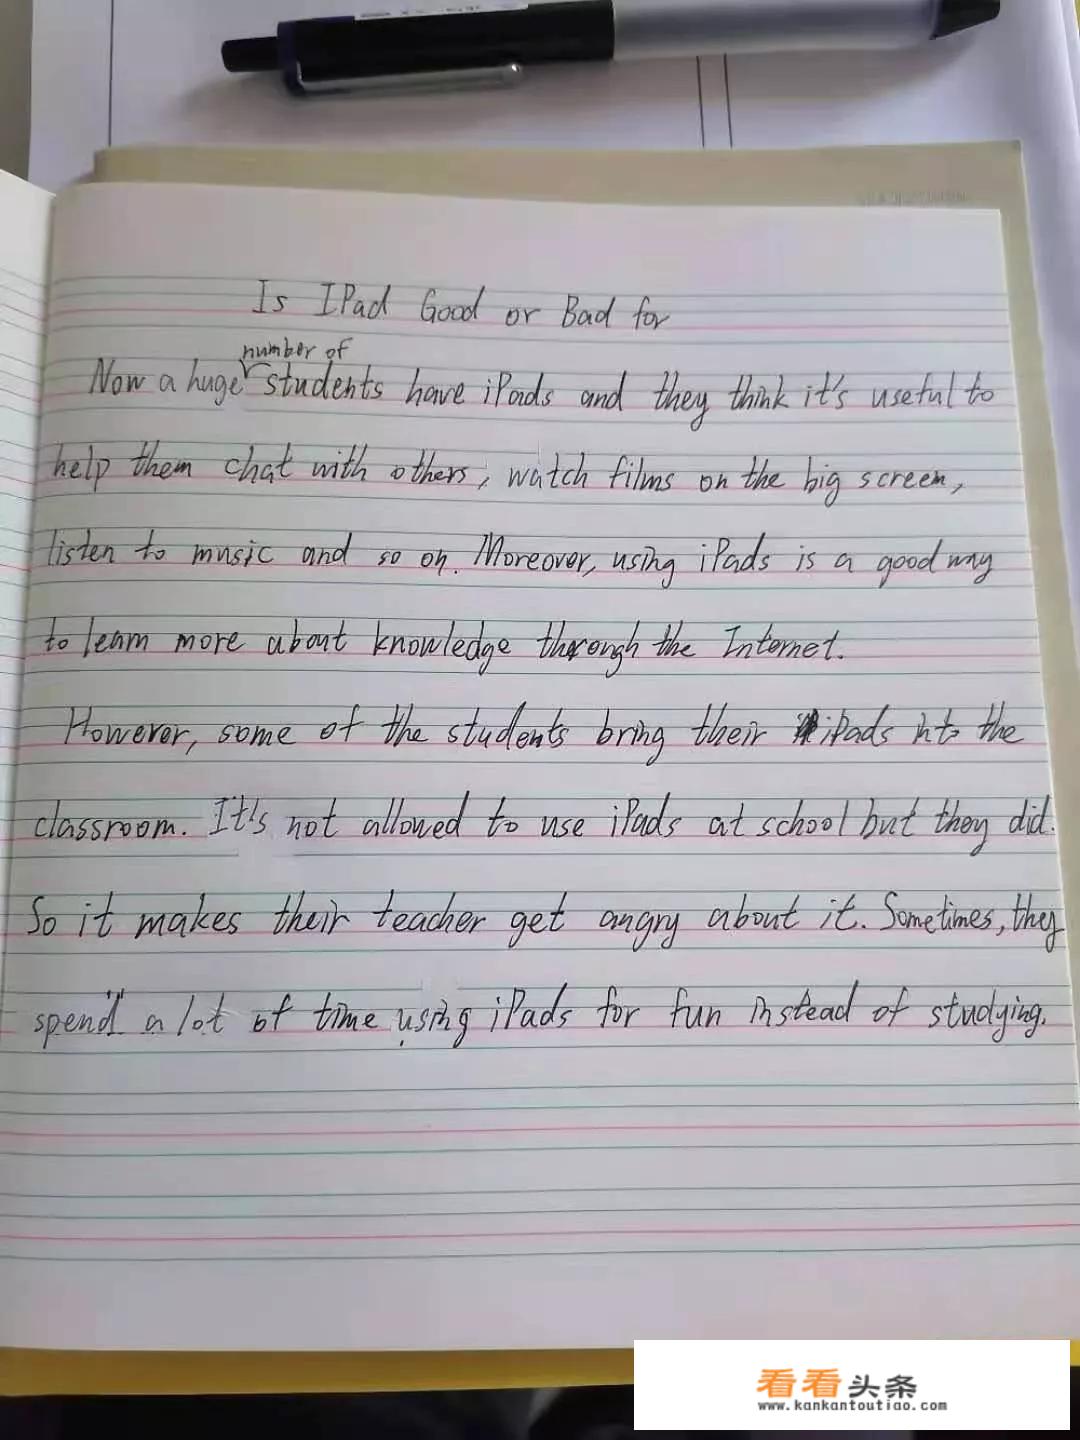 Is IPad Good or Bad for
number of
Now a huge students have iPads and they think it's useful to
help them chat with others, watch films on the big screen,
listen to music and so on. Moreover, using iPads is a good way
to learn more about knowledge through the Internet.
However, some of the students bring their iPads into the
classroom. It's not allowed to use iPads at school but they did.
So it makes their teacher get angry about it. Sometimes, they
spend a lot of time using iPads for fun instead of studying.
看看头条
www.kankantoutiao.com